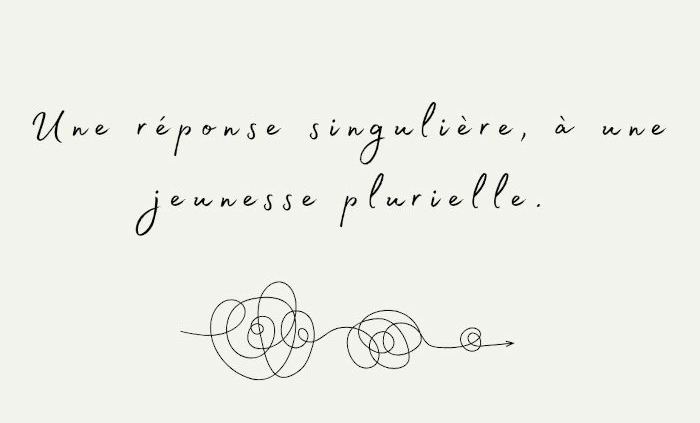 Une réponse singulière, à une
jeunesse plurielle.